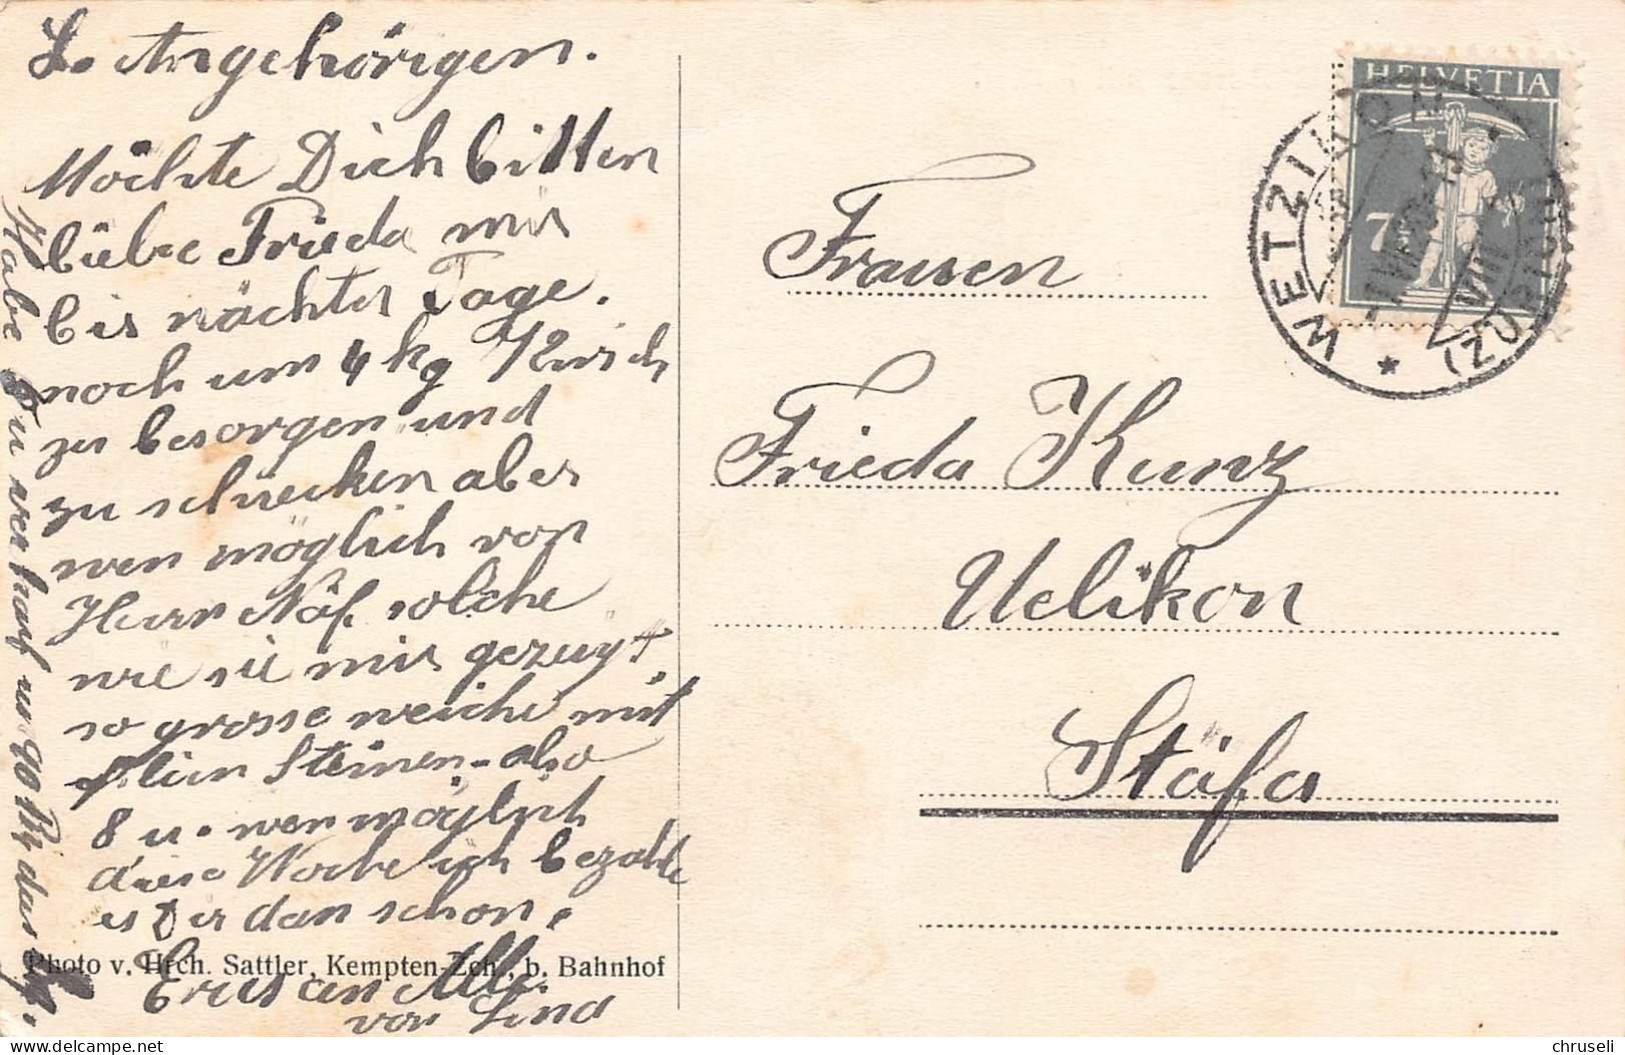 L. Angehörigen.
Möchte Dich bitten
liebe Frieda mir
bis nächter Tage.
noch um 4 kg Kirsch
zu besorgen und
zu schiecken aber
wen möglich von
Herr Näf. solche
wie sie mir gezeugt,
so grosse weiche mit
klein Steinen - also
8 u. wen möglich
diese Woche ich bezahle
es Dir dan schon.
Photo v. Hrch. Sattler, Kempten-Zch., b. Bahnhof
Grus an Alle.
von Lina
Habe zu verkauf us 90 Rp das kg.
HELVETIA
7
WETZIKON
(ZÜRICH)
VIII
Frauen
Frieda Kunz
Uelikon
Stäfa
delcampe.net
chruseli